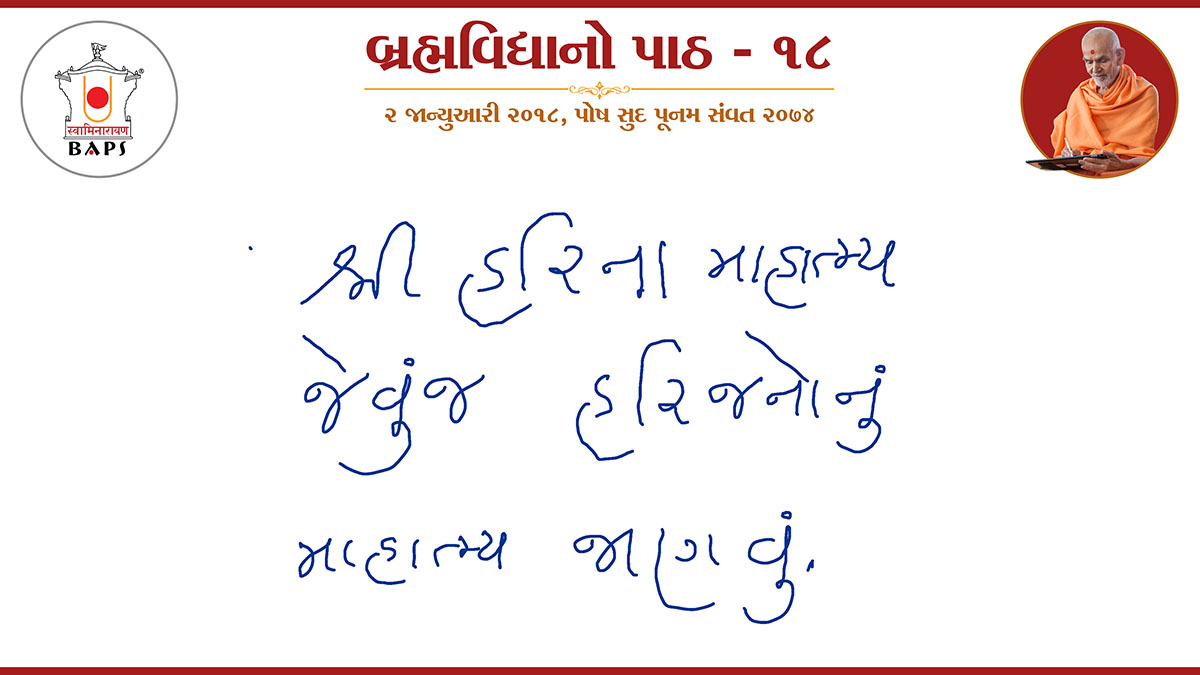 બ્રહ્મવિદ્યાનો પાઠ - ૧૮
૨ જાન્યુઆરી ૨૦૧૮, પોષ સુદ પૂનમ સંવત ૨૦૭૪
स्वामिनारायण
BAPS
શ્રી હરિના માહાત્મ્ય
જેવુંજ હરિજનોનું
માહાત્મ્ય જાણવું.